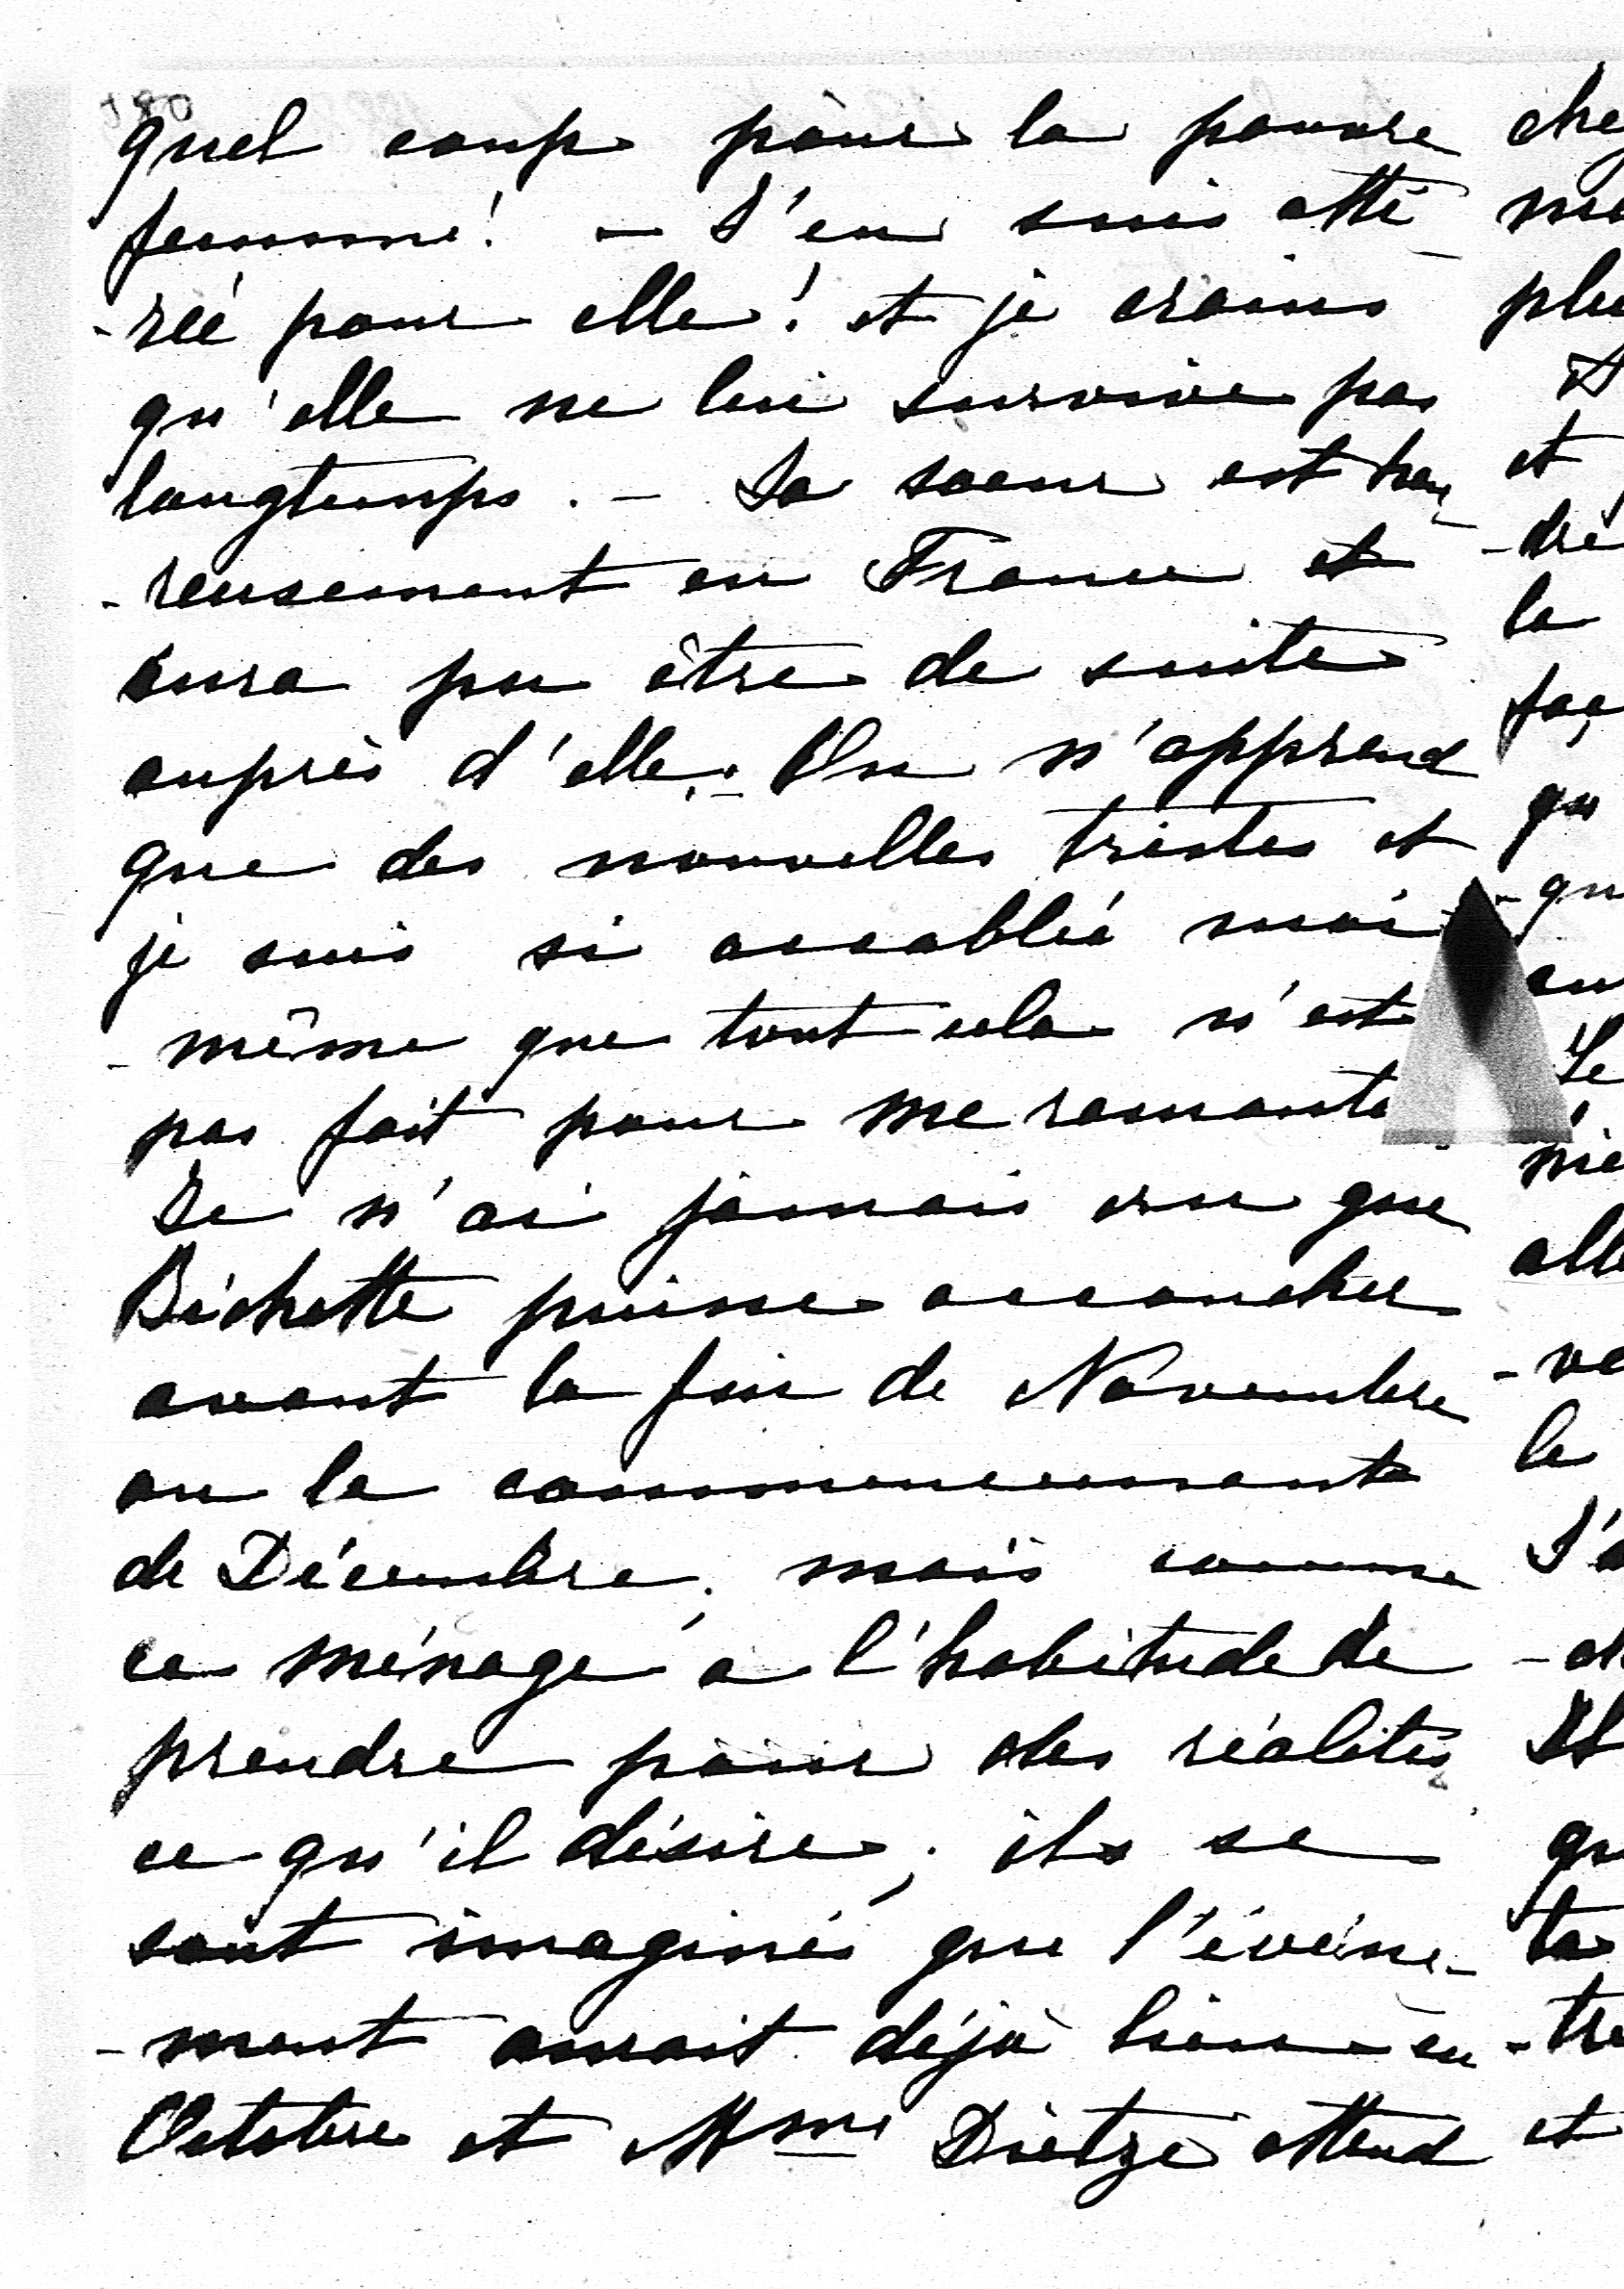 380
quel coup pour la pauvre
femme! - J'en suis atté-
-rée pour elle! et je crains
qu'elle ne lui survive pas
longtemps. - Sa soeur est heu-
-reusement en France et
aura pu être de suite
auprès d'elle. - On n'apprend
que des nouvelles tristes et
je suis si accablée moi-
-même que tout cela n'est
pas fait pour me remonte
Je n'ai jamais cru que
Bichette puisse accoucher
avant la fin de Novembre
ou le commencement
de Décembre, mais comme
ce ménage a l'habitude de
prendre pour des réalités
ce qu'il désire; ils se
sont imaginés que l'événe-
-ment aurait déjà lieu en
Octobre et Mme Dietze attend
che
me
plu
et
-dre
le
faç
qu
-qu
en
Le
nie
alle
-ve
le
J'a
Il
qu
ta
-tre
et